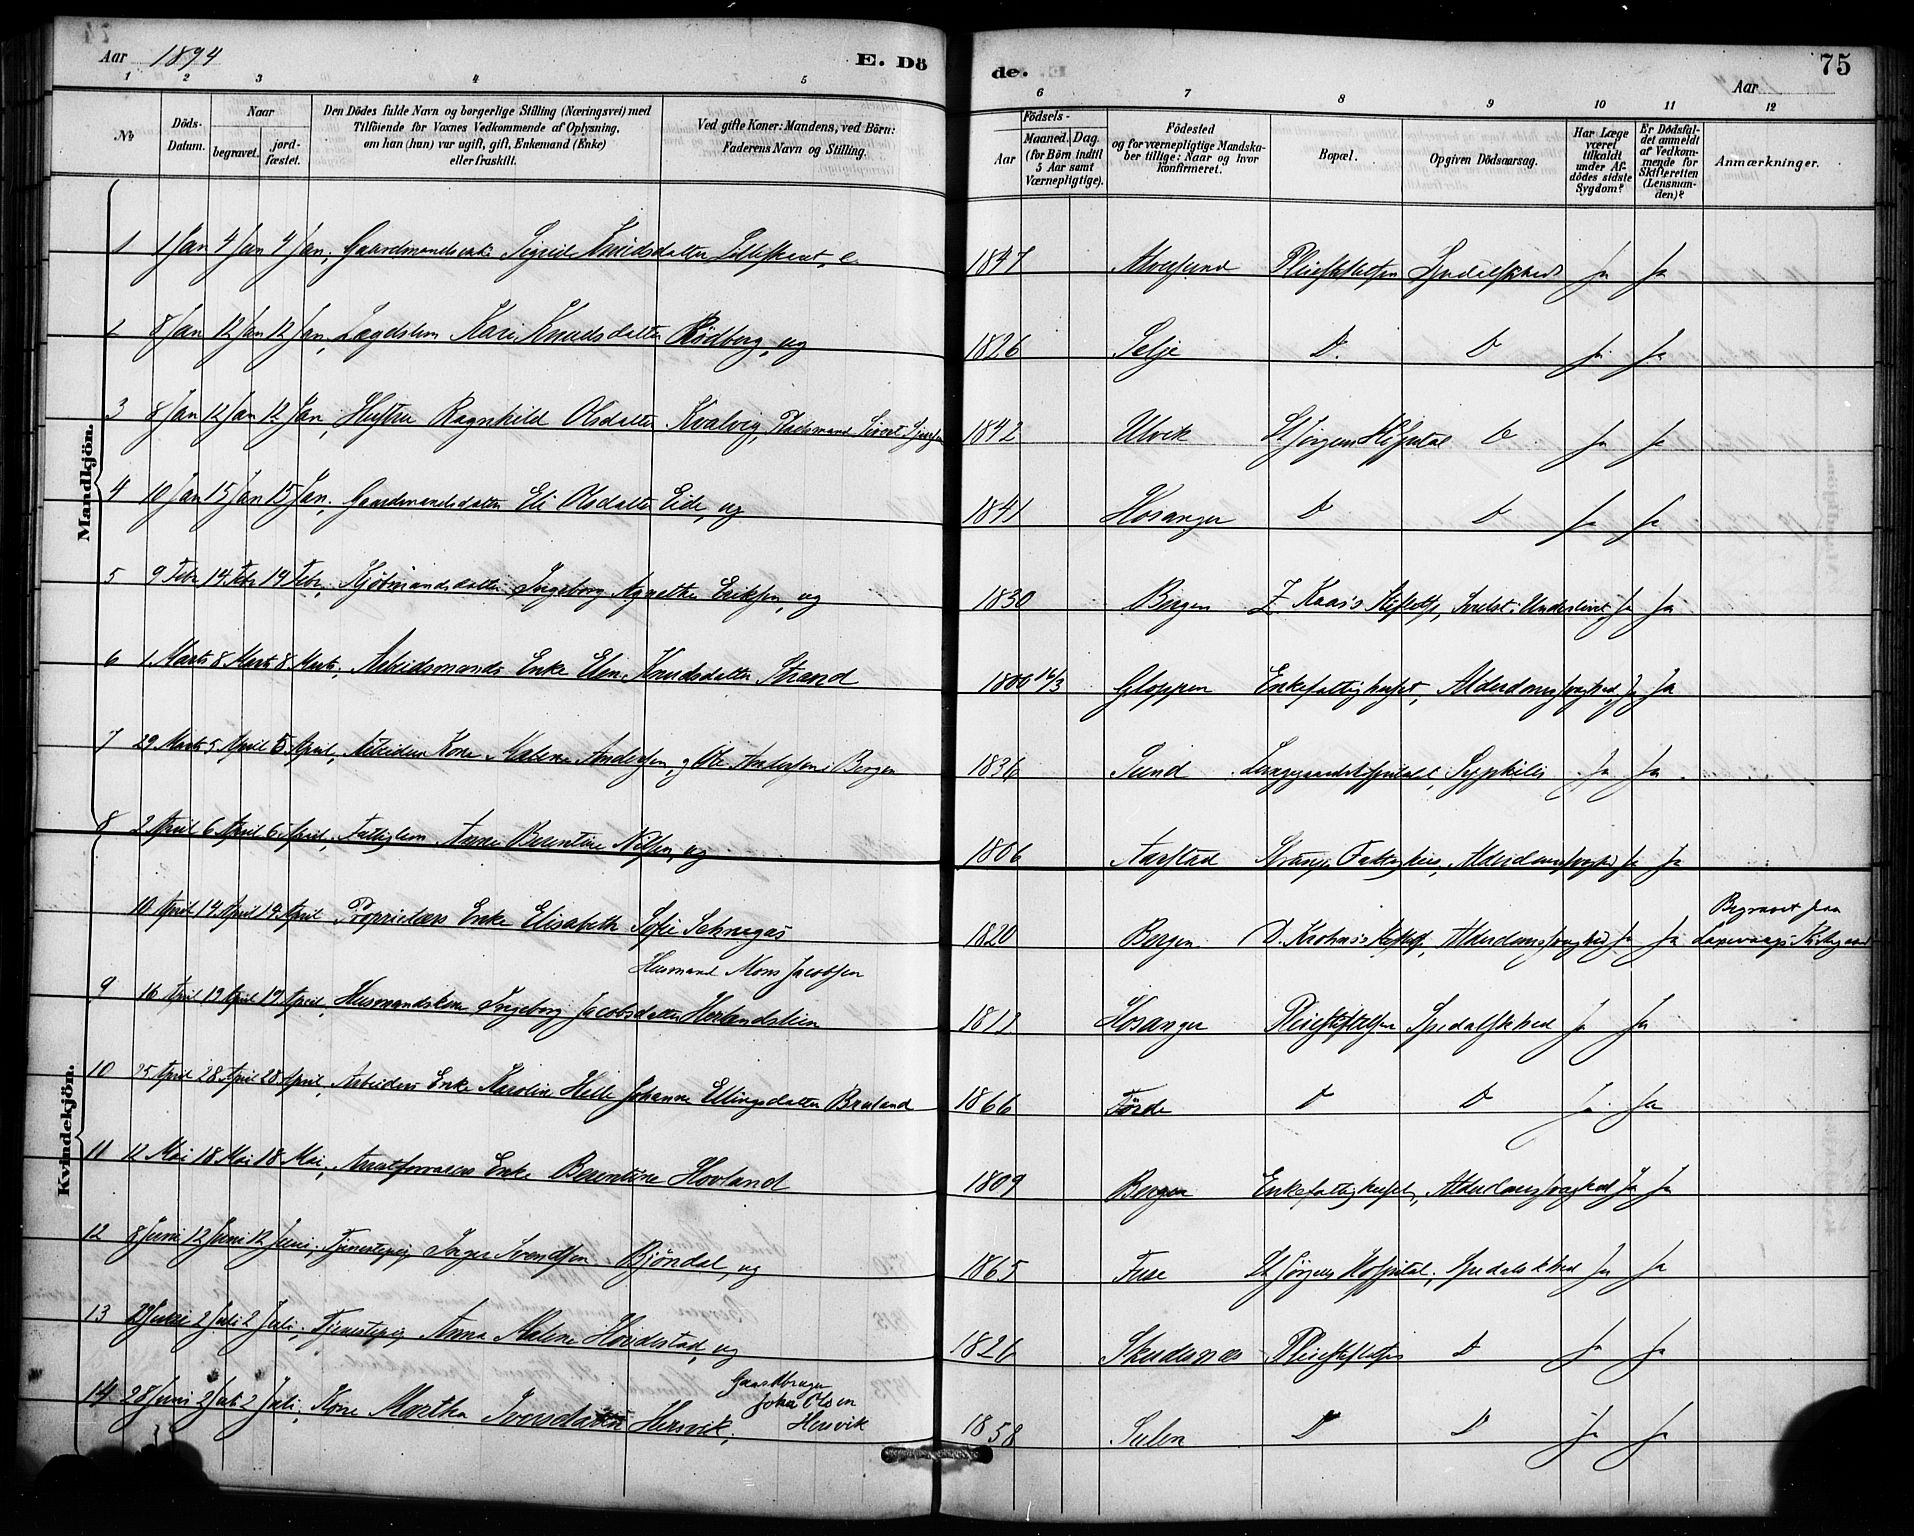 Aar 1894
E. Dö
de.
Aar
75
1 2 3 4 5 6 7 8 9 10 11 12
№
Döds-Datum.
Naar
begravet.
jord-fæstet.
Den Dödes fulde Navn og borgerlige Stilling (Næringsvei) med
Tilföiende for Voxnes Vedkommende af Oplysning,
om han (hun) var ugift, gift, Enkemand (Enke)
eller fraskilt.
Ved gifte Koner: Mandens, ved Börn:
Faderens Navn og Stilling.
Födsels-
Aar
Maaned. Dag.
(for Börn indtil
5 Aar samt
Værnepligtige).
Födested
og for værnepligtige Mandska-
ber tillige: Naar og hvor
konfirmeret.
Bopæl.
Opgiven Dödsaarsag.
Har Læge
været
tilkaldt
under Af-
dödes sidste
Sygdom?
Er Dödsfal-
det anmeldt
af Vedkom-
mende for
Skifteretten
(Lensman-
den)?
Anmærkninger.
Mandkjön.
Kvindekjön.
1 1 Jan 4 Jan 4 Jan, Sigrid Knudsdatter 1847 Alversund Pleiestiftelsen Spedalskhed Ja Ja
2 8 Jan 12 Jan 12 Jan, Lægdslem Kari Knudsdatter Rödberg, ug 1826 Selje D. D Ja Ja
3 8 Jan 12 Jan 12 Jan, Hustru Ragnhild Olsdatter Kvalvig, Pladsmand Sivert 1842 Ulvik St Jörgens Hospital D Ja Ja
4 10 Jan 15 Jan 15 Jan, Gaardmandsdatter Eli Olsdatter Eide, ug 1841 Hosanger D D Ja Ja
5 9 Febr 14 Febr 14 Febr, Kjöbmandsdatter Ingeborg Agnethe Eriksen, ug 1830 Bergen Z. Kaas's Stiftelse, Underlivet, Ja Ja
6 1 Marts 8 Marts 8 Marts, Arbeidsmands Enke Elen Knudsdatter Strand 1800 16/3 Gloppen Enkefattighuset, Alderdomssvaghed, Ja Ja
7 29 Marts 5 April 5 April, Arbeiders Kone Malene Andersen, g Ole Andersen i Bergen 1836 Sund Lungegaardshospitalet, Syphilis Ja Ja
8 2 April 6 April 6 April, Fattiglem Anne Berentine Nilsen, ug 1806 Aarstad Stranges Fattighus, Alderdomssvaghed Ja Ja
10 April 14 April 14 April Proprietærs Enke Elisabeth Sofie Schnegas 1820 Bergen D. Krohns's Stiftelse, Alderdomssvaghed Ja Ja Begravet paa
Laxevaags Kirkegaard
Husmand Mons Jacobsen
9 16 April 19 April 19 April, Husmandskone Ingeborg Jacobsdatter Herlandslien Hosanger Pleiestiftelsen Spedalskhed Ja Ja
10 25 April 28 April 28 April, Arbeiders Enke Karoline Helle Johanne Ellingsdatter Bruland 1866 Förde D D Ja Ja
11 12 Mai 18 Mai 18 Mai, Enke Berentine Hovland 1809 Bergen Enkefattighuset, Alderdomssvaghed Ja Ja
12 8 Juni 12 Juni 12 Juni, Tjenestepig Inger Svendsen Bjöndal, ug 1865 Fuse St Jörgens Hospital, Spedalskhed Ja Ja
13 2 Juli 2 Juli, Tjenestepig Anna Malene Hovdestad, ug 1826 Skudenes Pleiestiftelsen D Ja Ja
Gaardbruger
14 28 Juni 2 Juli 2 Juli, Kone Martha Hersvik, Johan Olsen
Hersvik 1858 Sulen D D Ja Ja